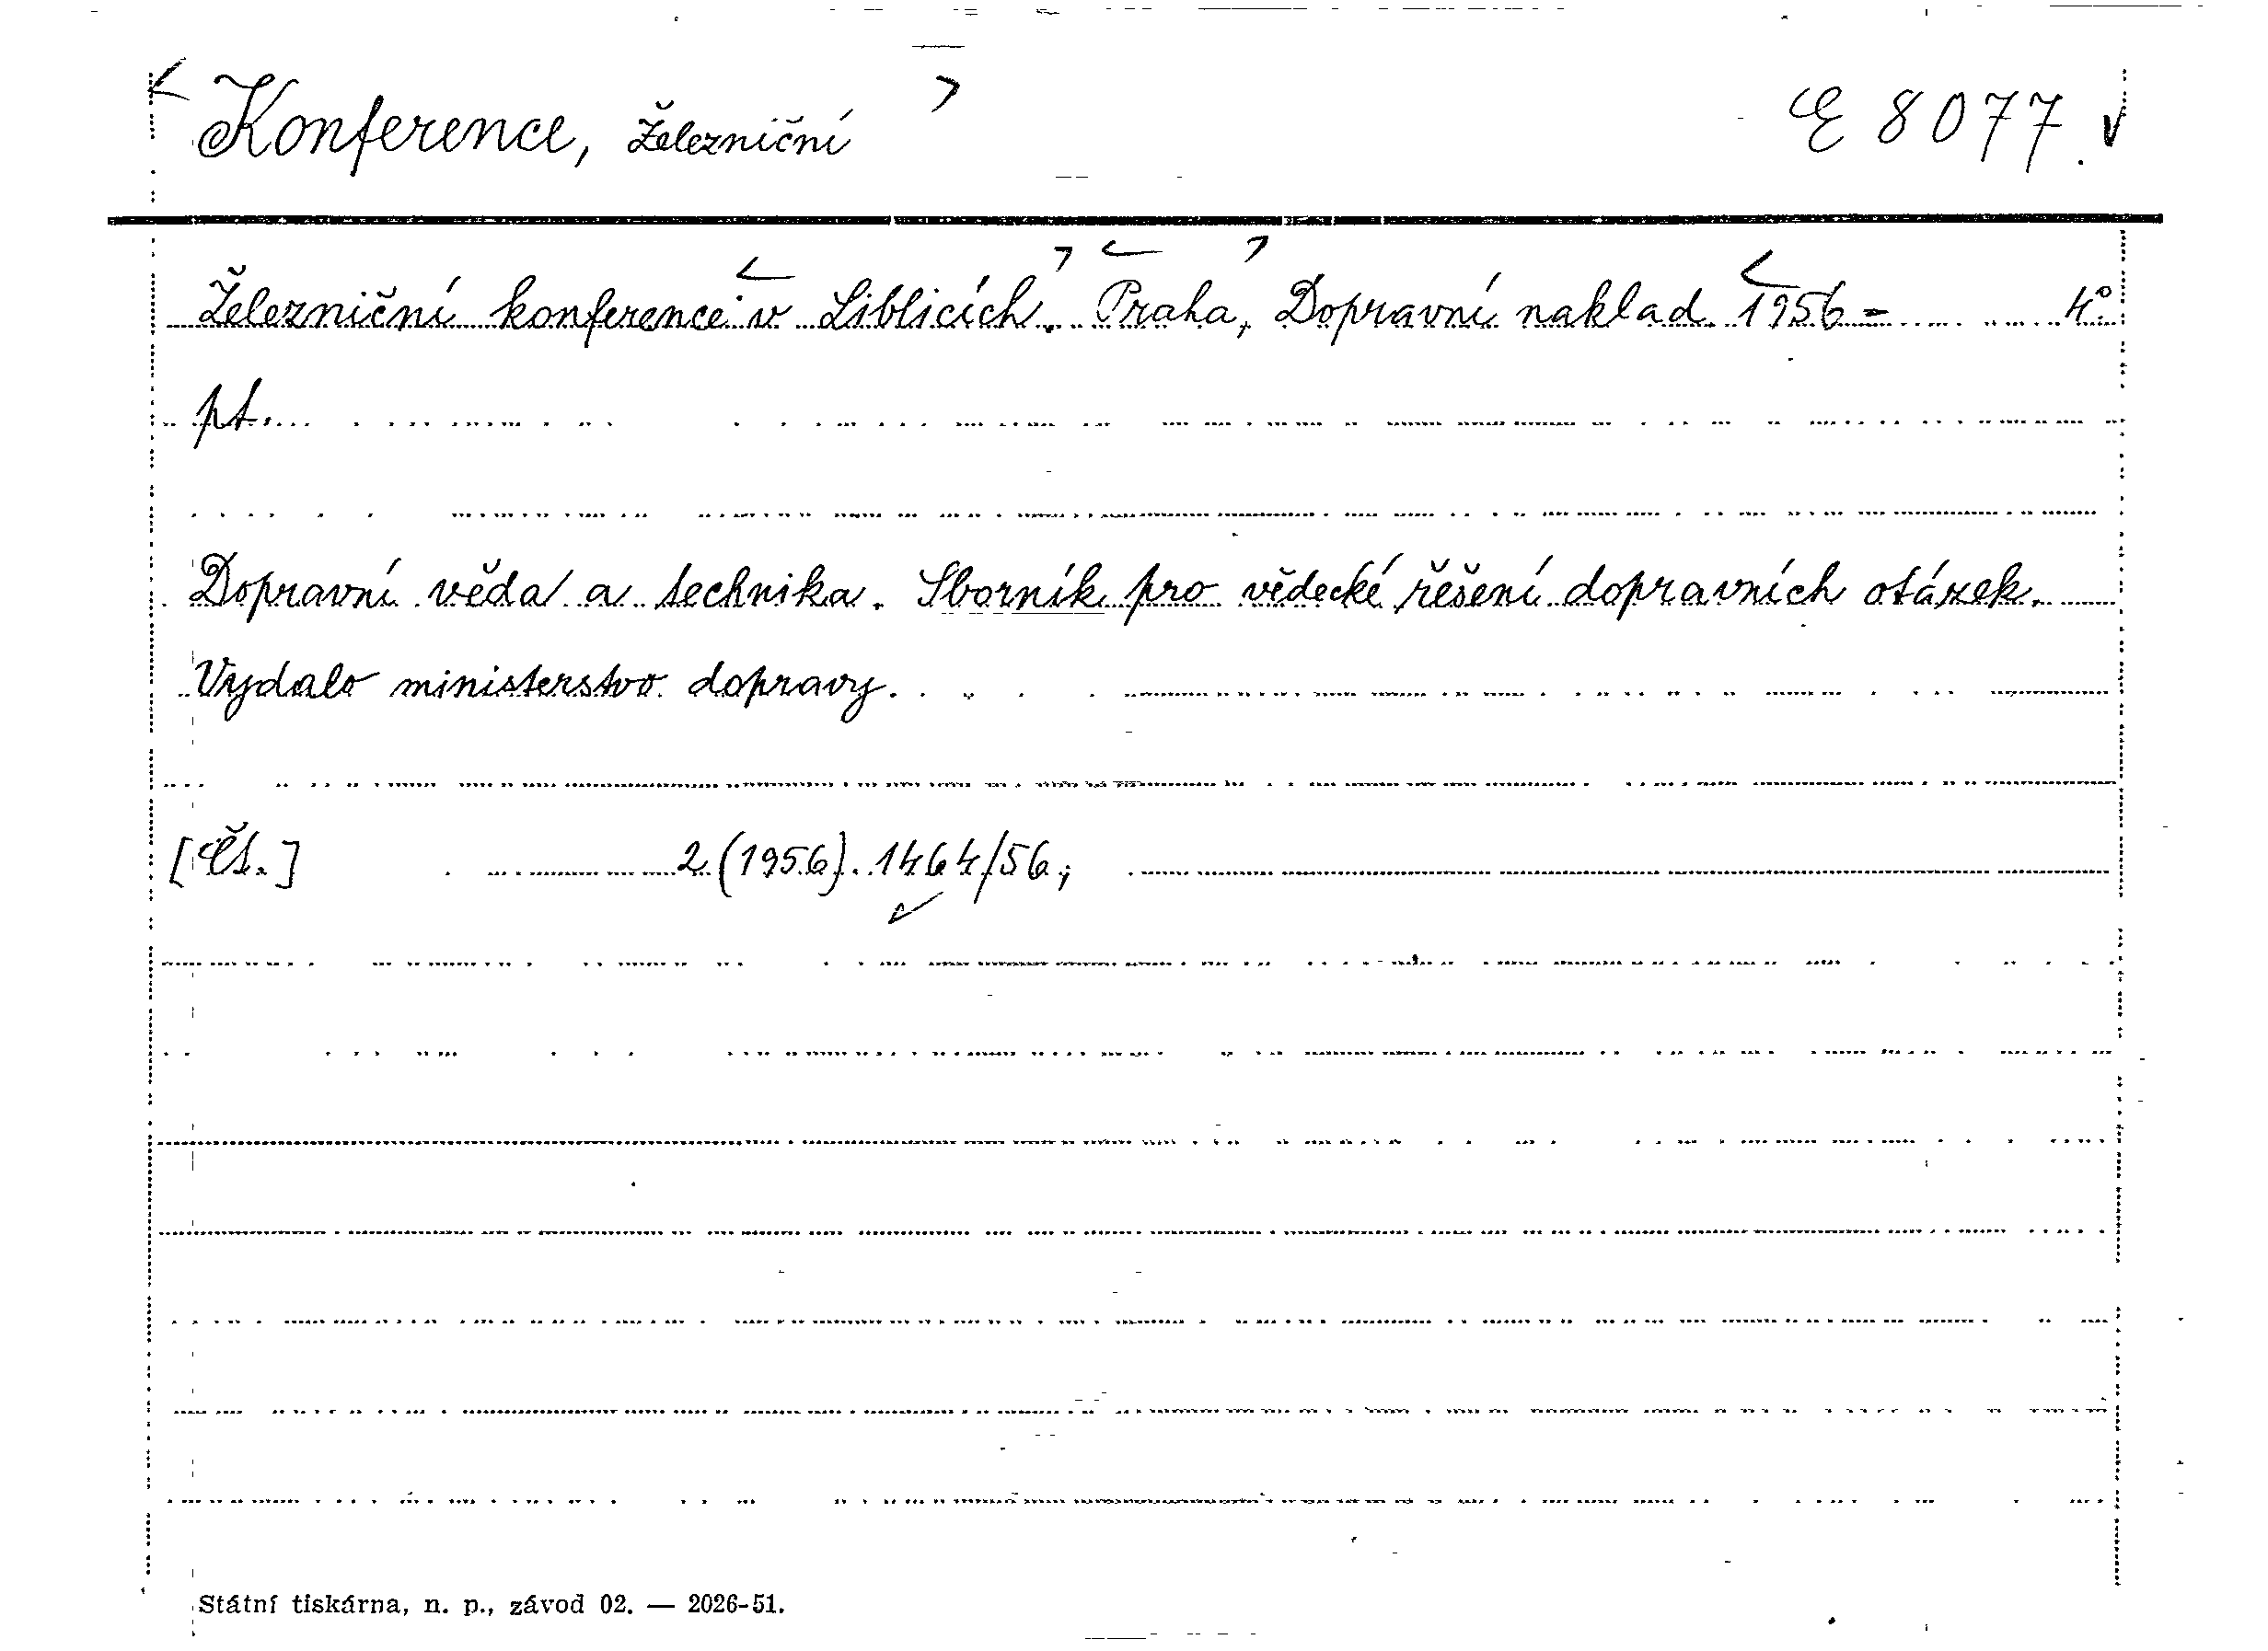 < Konference, železniční > E 8077. √
Železniční konference v Liblicích. Praha, Dopravní naklad. 1956- 4°
pt.
Dopravní věda a technika. Sborník pro vědecké řešení dopravních otázek.
Vydalo ministerstvo dopravy.
[Čs.] 2 (1956). 1464/56;
Státní tiskárna, n. p., závod 02. — 2026-51.